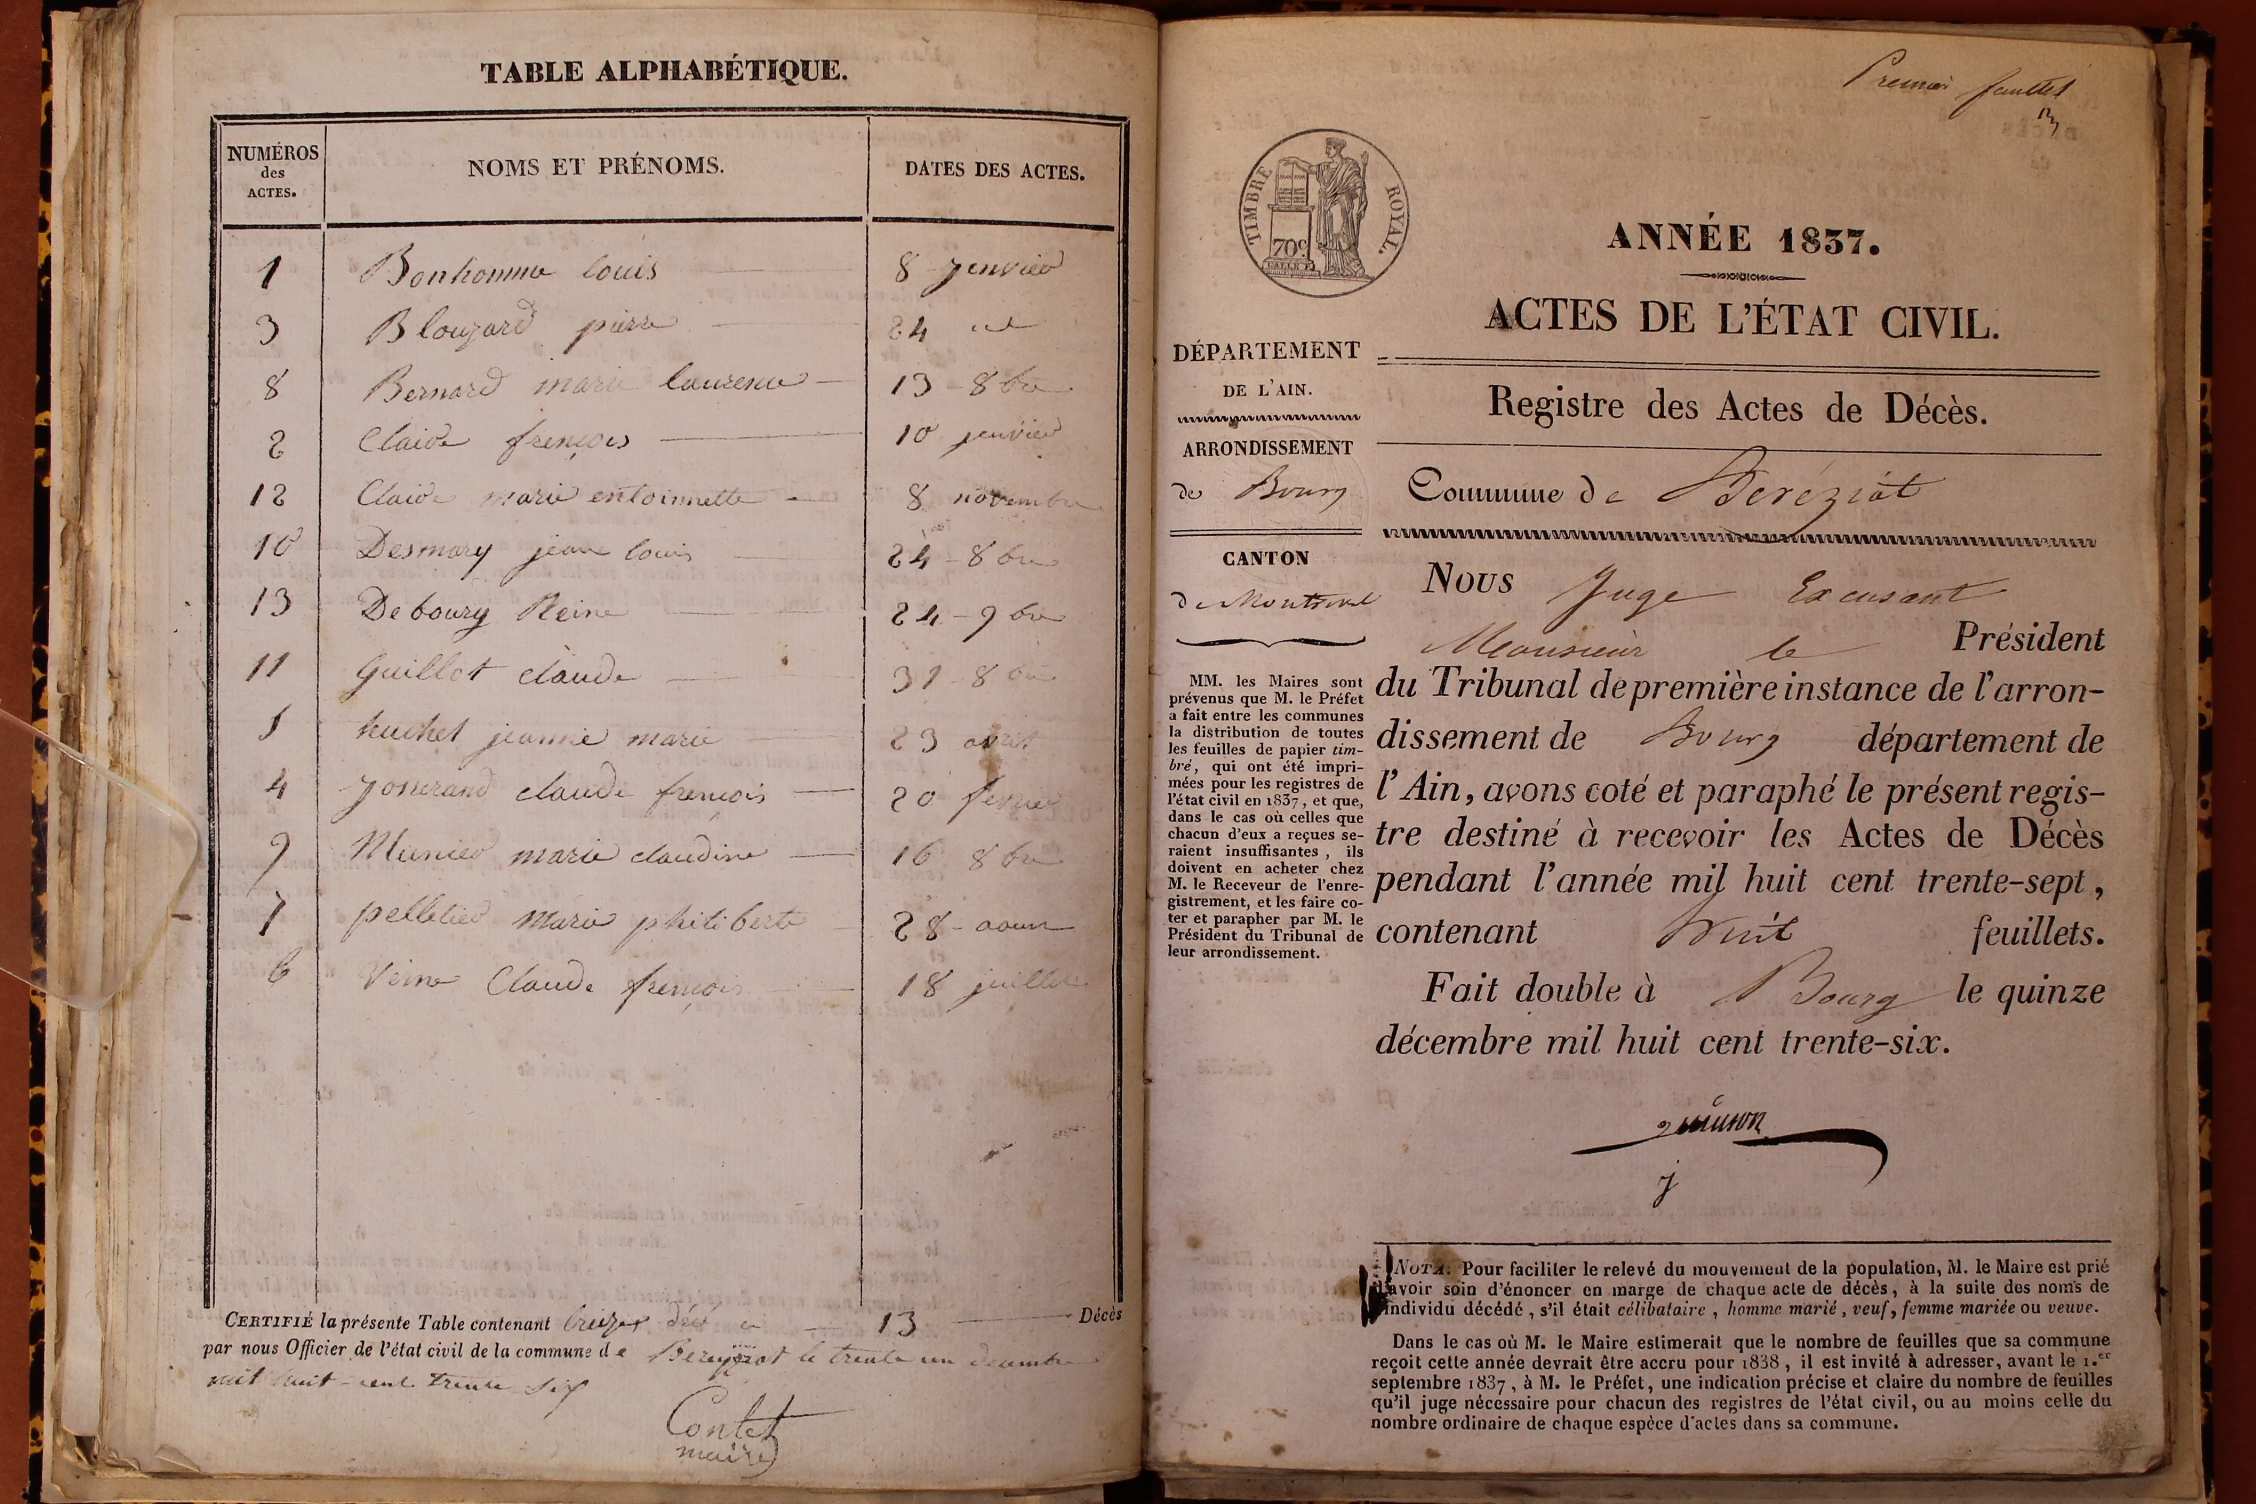 TABLE ALPHABÉTIQUE.
NUMÉROS des ACTES. NOMS ET PRÉNOMS. DATES DES ACTES.
1 Bonhomme louis 8 jenvier
3 Blouzard pierre 24
8 Bernard marie laurence 13 - 8bre
2 Claide frençois 10 jenvier
12 Claide marie entoinnette 8 novembre
10 Desmary jean louis 24 - 8bre
13 Debourg Reine 24 - 9bre
11 Guillot claude 31 - 8bre
5 huchet jeanne marie 23 avril
4 josserand claude frençois 20 fevrier
9 Munier marie claudine 16 8bre
7 pelletier marie philiberte 28 - aout
6 Veine Claude frençois 18 juillet
CERTIFIÉ la présente Table contenant 13 Décès
par nous Officier de l'état civil de la commune de Bereyziat le trente un decembre
mil huit-cent trente six
Contet
maire
Premier feuillet
TIMBRE ROYAL.
70c
ANNÉE 1837.
ACTES DE L'ÉTAT CIVIL.
DÉPARTEMENT
DE L'AIN.
Registre des Actes de Décès.
ARRONDISSEMENT
de Bourg
Commune de Beréziat
CANTON
de Montrevel
MM. les Maires sont
prévenus que M. le Préfet
a fait entre les communes
la distribution de toutes
les feuilles de papier tim-
bré, qui ont été impri-
mées pour les registres de
l'état civil en 1837, et que,
dans le cas où celles que
chacun d'eux a reçues se-
raient insuffisantes, ils
doivent en acheter chez
M. le Receveur de l'enre-
gistrement, et les faire co-
ter et parapher par M. le
Président du Tribunal de
leur arrondissement.
Nous Juge Excusant
Monsieur le Président
du Tribunal de première instance de l'arron-
dissement de Bourg département de
l'Ain, avons coté et paraphé le présent regis-
tre destiné à recevoir les Actes de Décès
pendant l'année mil huit cent trente-sept,
contenant huit feuillets.
Fait double à Bourg le quinze
décembre mil huit cent trente-six.
NOTA. Pour faciliter le relevé du mouvement de la population, M. le Maire est prié
d'avoir soin d'énoncer en marge de chaque acte de décès, à la suite des noms de
individu décédé, s'il était célibataire, homme marié, veuf, femme mariée ou veuve.
Dans le cas où M. le Maire estimerait que le nombre de feuilles que sa commune
reçoit cette année devrait être accru pour 1838, il est invité à adresser, avant le 1.er
septembre 1837, à M. le Préfet, une indication précise et claire du nombre de feuilles
qu'il juge nécessaire pour chacun des registres de l'état civil, ou au moins celle du
nombre ordinaire de chaque espèce d'actes dans sa commune.